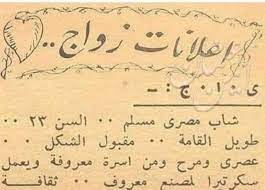 اعلانات زواج ..
ى ٠ ا ٠ ج : ــ
شاب مصرى مسلم ٠٠ السن ٢٣ ٠٠
طويل القامة ٠٠ مقبول الشكل ٠٠
عصرى ومرح ومن اسرة معروفة ويعمل
سكرتيرا لمصنع معروف ٠٠ ثقافة